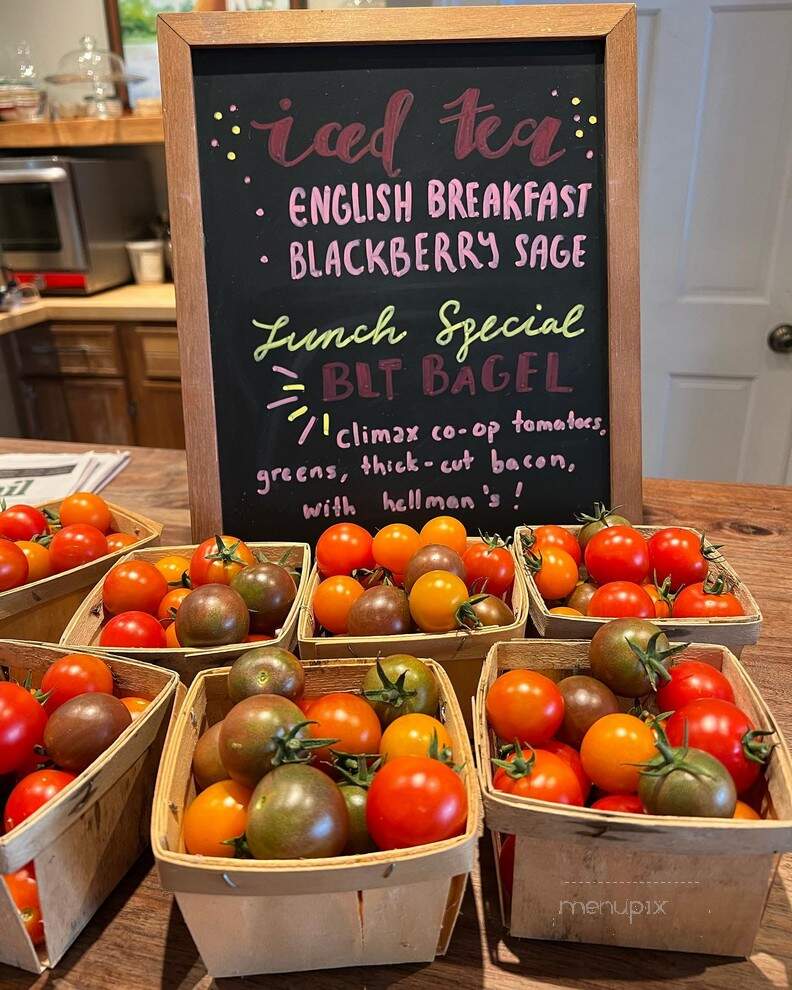 iced tea
ENGLISH BREAKFAST
BLACKBERRY SAGE
Lunch Special
BLT BAGEL
climax co-op tomatoes,
greens, thick-cut bacon,
with hellman's!
menupix